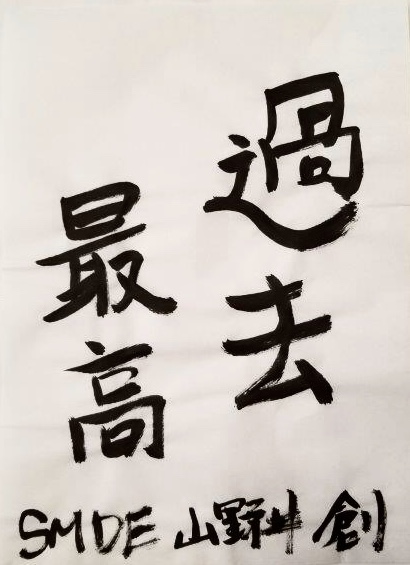 過去
最高
SMDE 山野井 創